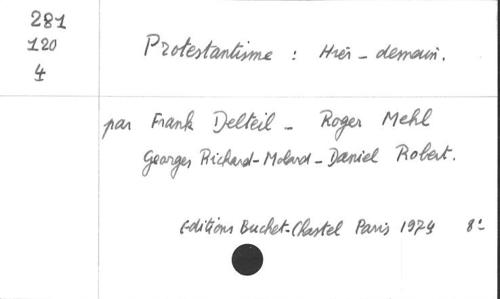 281
120
4
Protestantisme : Hier - demain.
par Frank Delteil - Roger Mehl
Georges Richard-Molard - Daniel Robert.
Editions Buchet-Chastel Paris 1974 8°